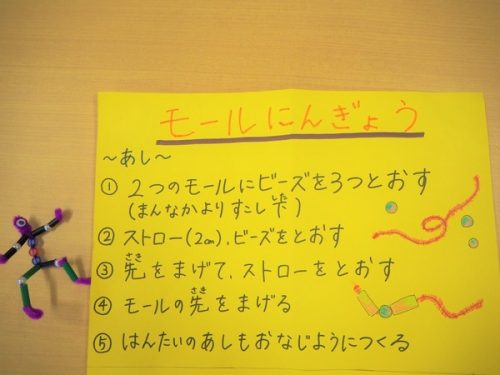 モールにんぎょう
～あし～
① 2つのモールにビーズを3つとおす
(まんなかよりすこし下)
② ストロー(2cm)、ビーズをとおす
③ 先をまげて、ストローをとおす
④ モールの先をまげる
⑤ はんたいのあしもおなじようにつくる